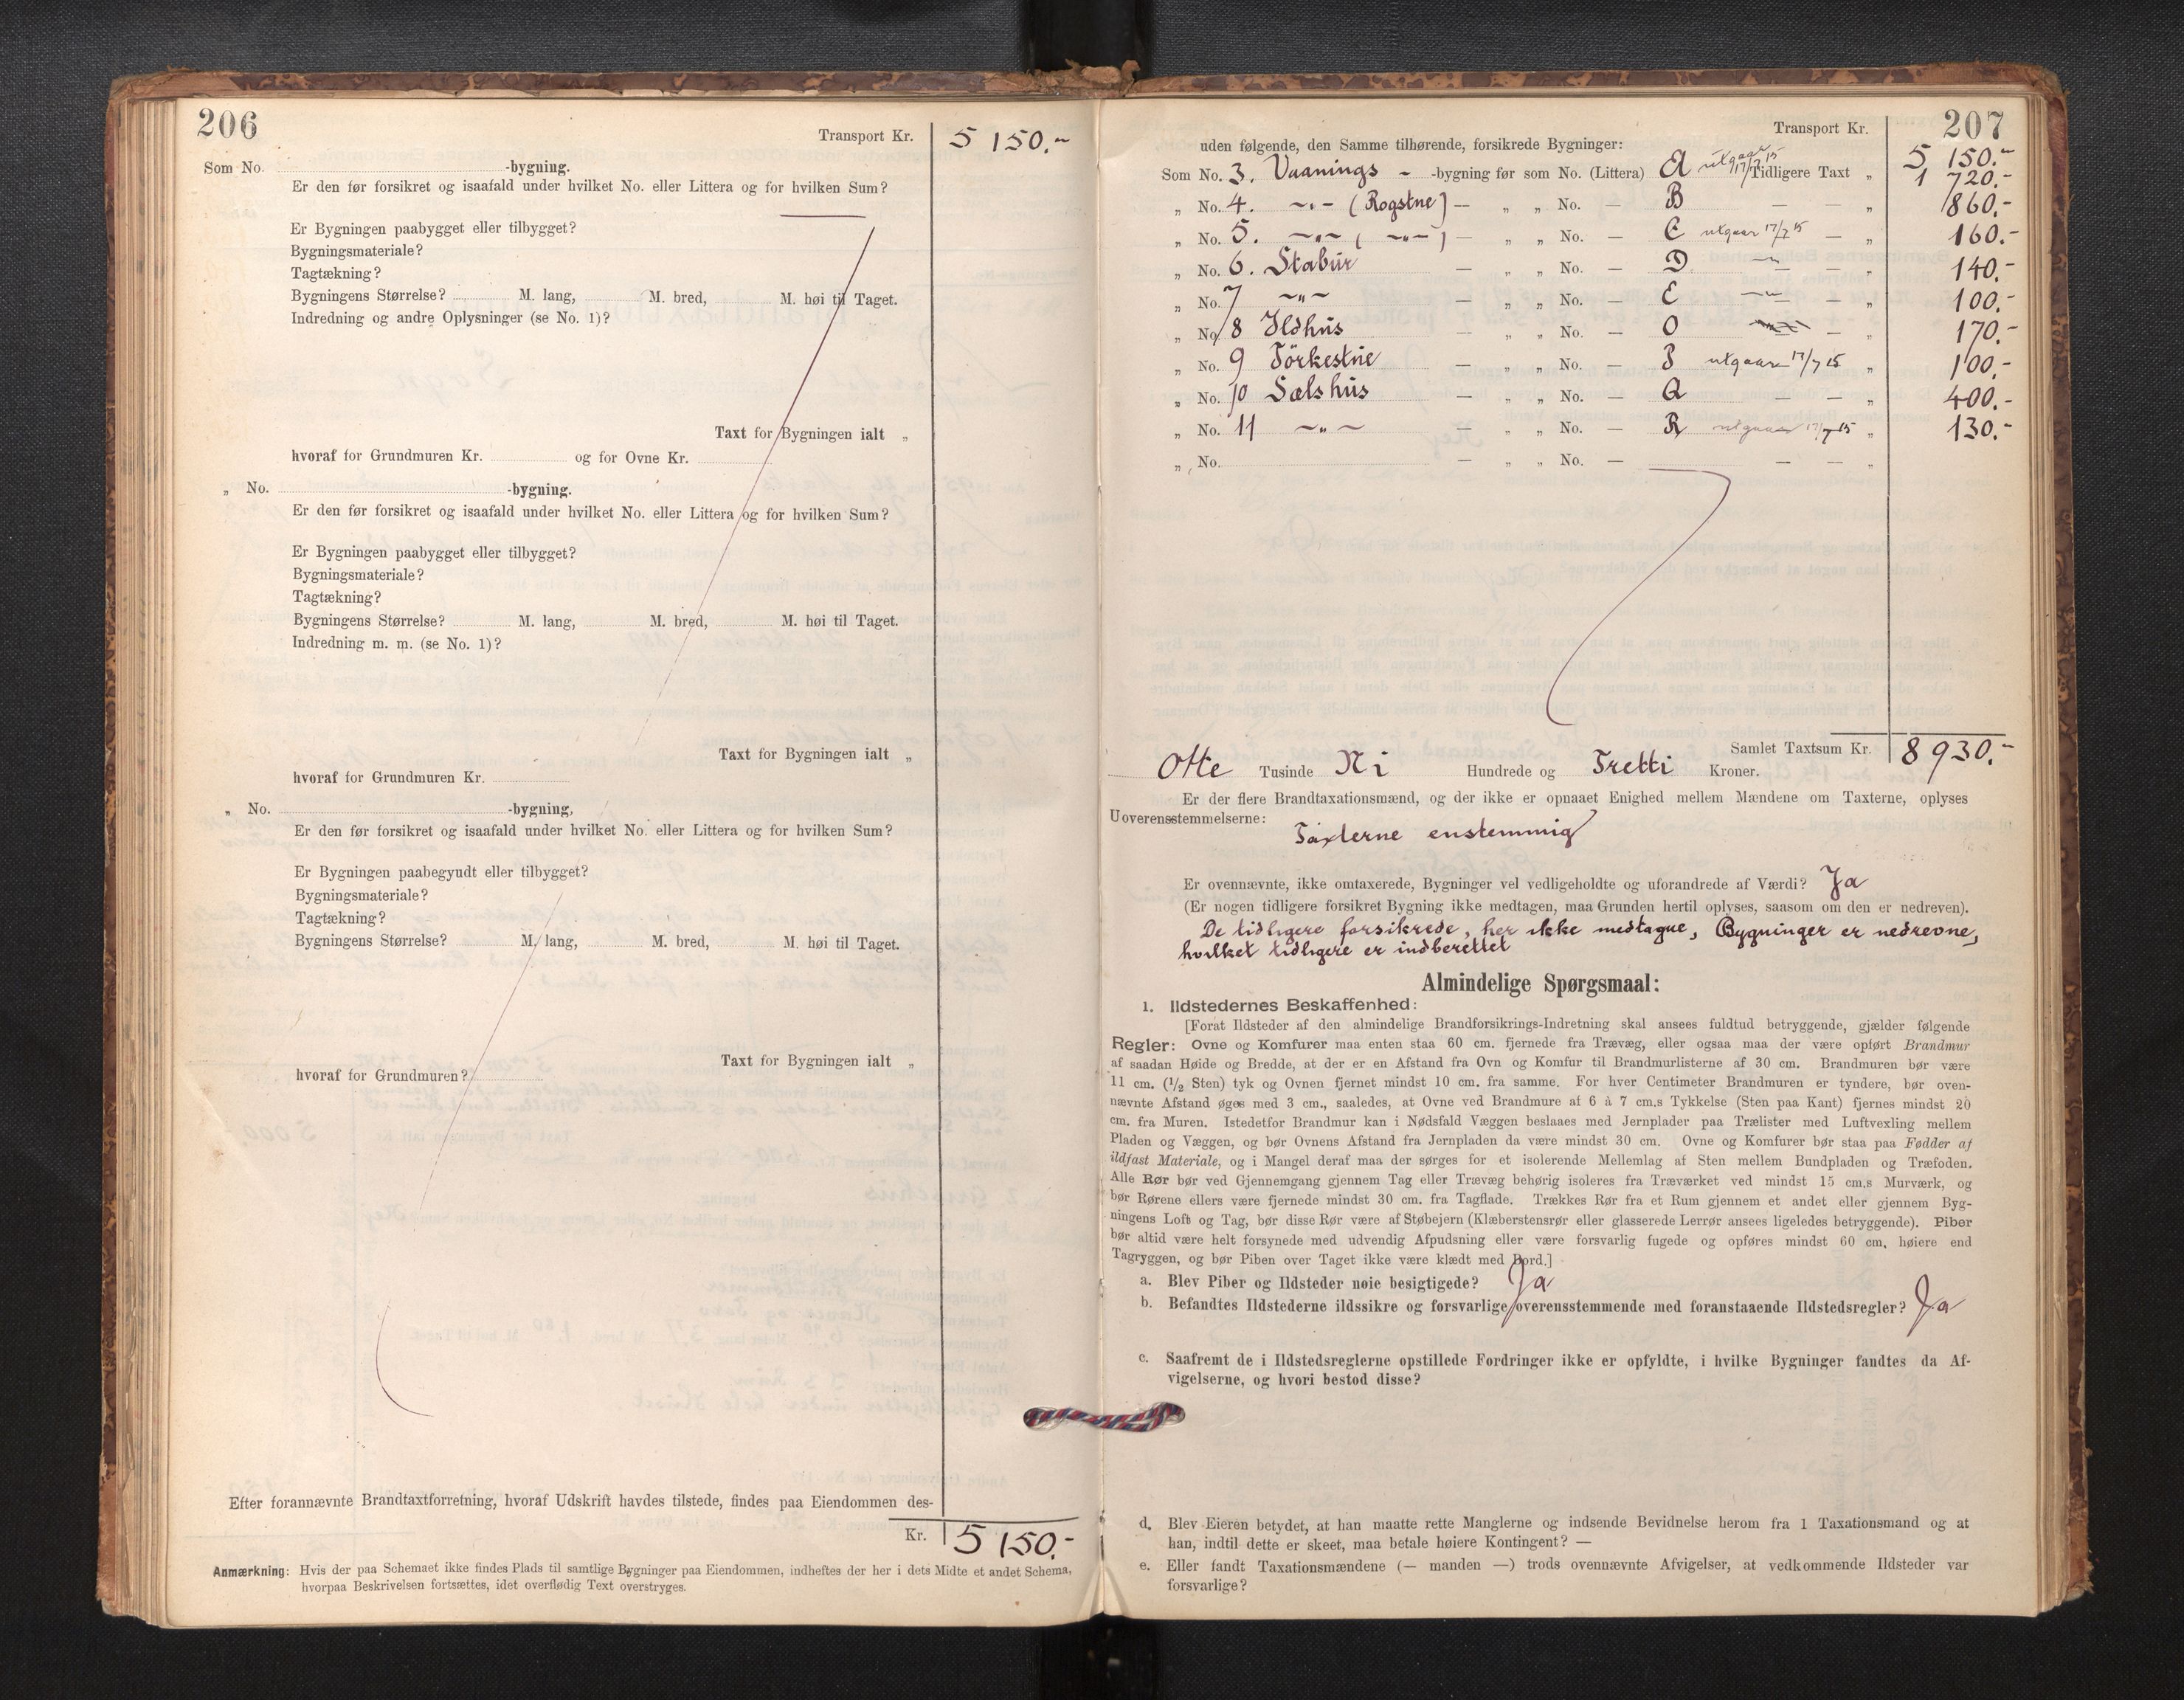 206
Transport Kr. 5 150.-
Som No. -bygning.
Er den før forsikret og isaafald under hvilket No. eller Littera og for hvilken Sum?
Er Bygningen paabygget eller tilbygget?
Bygningsmateriale?
Tagtækning?
Bygningens Størrelse? M. lang, M. bred, M. høi til Taget.
Indredning og andre Oplysninger (se No. 1)?
Taxt for Bygningen ialt „
hvoraf for Grundmuren Kr. og for Ovne Kr.
„ No. -bygning.
Er den før forsikret og isaafald under hvilket No. eller Littera og for hvilken Sum?
Er Bygningen paabygget eller tilbygget?
Bygningsmateriale?
Tagtækning?
Bygningens Størrelse? M. lang, M. bred, M. høi til Taget.
Indredning m. m. (se No. 1)?
Taxt for Bygningen ialt „
hvoraf for Grundmuren Kr.
„ No. -bygning,
Er den før forsikret og isaafald under hvilket No. eller Littera og for hvilken Sum?
Er Bygningen paabegyndt eller tilbygget?
Bygningsmateriale?
Tagtækning?
Bygningens Størrelse? M. lang, M. bred, M. høi til Taget.
Taxt for Bygningen ialt „
hvoraf for Grundmuren?
Efter forannævnte Brandtaxtforretning, hvoraf Udskrift havdes tilstede, findes paa Eiendommen des-
Kr. 5 150.-
Anmærkning: Hvis der paa Schemaet ikke findes Plads til samtlige Bygninger paa Eiendommen, indheftes der her i dets Midte et andet Schema,
hvorpaa Beskrivelsen fortsættes, idet overflødig Text overstryges.
207
Transport Kr. 5 150.-
uden følgende, den Samme tilhørende, forsikrede Bygninger:
Som No. 3. Vaanings - -bygning før som No. (Littera) A utgaar 17/7 15 Tidligere Taxt „ 1 720.-
„ No. 4. -„- (Rogstue) — „ „ No. — B — — „ 860.-
„ No. 5. -„- ( -„- ) — „ „ No. — C utgaar 17/7 15 — „ 160.-
„ No. 6. Stabur — „ „ No. — D -„- — „ 140.-
„ No. 7 -„- — „ „ No. — E -„- — „ 100.-
„ No. 8 Ildhus — „ „ No. — O — „ 170.-
„ No. 9 Törkestue — „ „ No. — P utgaar 17/7 15 „ 100.-
„ No. 10 Sælshus — „ „ No. — Q — „ 400.-
„ No. 11 -„- — „ „ No. — R utgaar 17/7 15 „ 130.-
„ No. — „ „ No. — — — „
Samlet Taxtsum Kr. 8 930.-
Otte Tusinde Ni Hundrede og Tretti Kroner.
Er der flere Brandtaxationsmænd, og der ikke er opnaaet Enighed mellem Mændene om Taxterne, oplyses
Uoverensstemmelserne:
Taxterne enstemmig
Er ovennævnte, ikke omtaxerede, Bygninger vel vedligeholdte og uforandrede af Værdi? Ja
(Er nogen tidligere forsikret Bygning ikke medtagen, maa Grunden hertil oplyses, saasom om den er nedreven).
De tidligere forsikrede, her ikke medtagne, Bygninger er nedrevne,
hvilket tidligere er indberettet
Almindelige Spørgsmaal:
1. Ildstedernes Beskaffenhed:
[Forat Ildsteder af den almindelige Brandforsikrings-Indretning skal ansees fuldtud betryggende, gjælder følgende
Regler: Ovne og Komfurer maa enten staa 60 cm. fjernede fra Trævæg, eller ogsaa maa der være opført Brandmur
af saadan Høide og Bredde, at der er en Afstand fra Ovn og Komfur til Brandmurlisterne af 30 cm. Brandmuren bør være
11 cm. (1/2 Sten) tyk og Ovnen fjernet mindst 10 cm. fra samme. For hver Centimeter Brandmuren er tyndere, bør oven-
nævnte Afstand øges med 3 cm., saaledes, at Ovne ved Brandmure af 6 à 7 cm.s Tykkelse (Sten paa Kant) fjernes mindst 20
cm. fra Muren. Istedetfor Brandmur kan i Nødsfald Væggen beslaaes med Jernplader paa Trælister med Luftvexling mellem
Pladen og Væggen, og bør Ovnens Afstand fra Jernpladen da være mindst 30 cm. Ovne og Komfurer bør staa paa Fødder af
ildfast Materiale, og i Mangel deraf maa der sørges for et isolerende Mellemlag af Sten mellem Bundpladen og Træfoden.
Alle Rør bør ved Gjennemgang gjennem Tag eller Trævæg behørig isoleres fra Træværket ved mindst 15 cm.s Murværk, og
bør Rørene ellers være fjernede mindst 30 cm. fra Tagflade. Trækkes Rør fra et Rum gjennem et andet eller gjennem Byg-
ningens Loft og Tag, bør disse Rør være af Støbejern (Klæberstensrør eller glasserede Lerrør ansees ligeledes betryggende). Piber
bør altid være helt forsynede med udvendig Afpudsning eller være forsvarlig fugede og opføres mindst 60 cm. høiere end
Tagryggen, og bør Piben over Taget ikke være klædt med Bord.]
a. Blev Piber og Ildsteder nøie besigtigede? Ja
b. Befandtes Ildstederne ildssikre og forsvarlige overensstemmende med foranstaaende Ildstedsregler? Ja
c. Saafremt de i Ildstedsreglerne opstillede Fordringer ikke er opfyldte, i hvilke Bygninger fandtes da Af-
vigelserne, og hvori bestod disse?
d. Blev Eieren betydet, at han maatte rette Manglerne og indsende Bevidnelse herom fra 1 Taxationsmand og at
han, indtil dette er skeet, maa betale høiere Kontingent? —
e. Eller fandt Taxationsmændene (— manden —) trods ovennævnte Afvigelser, at vedkommende Ildsteder var
forsvarlige?